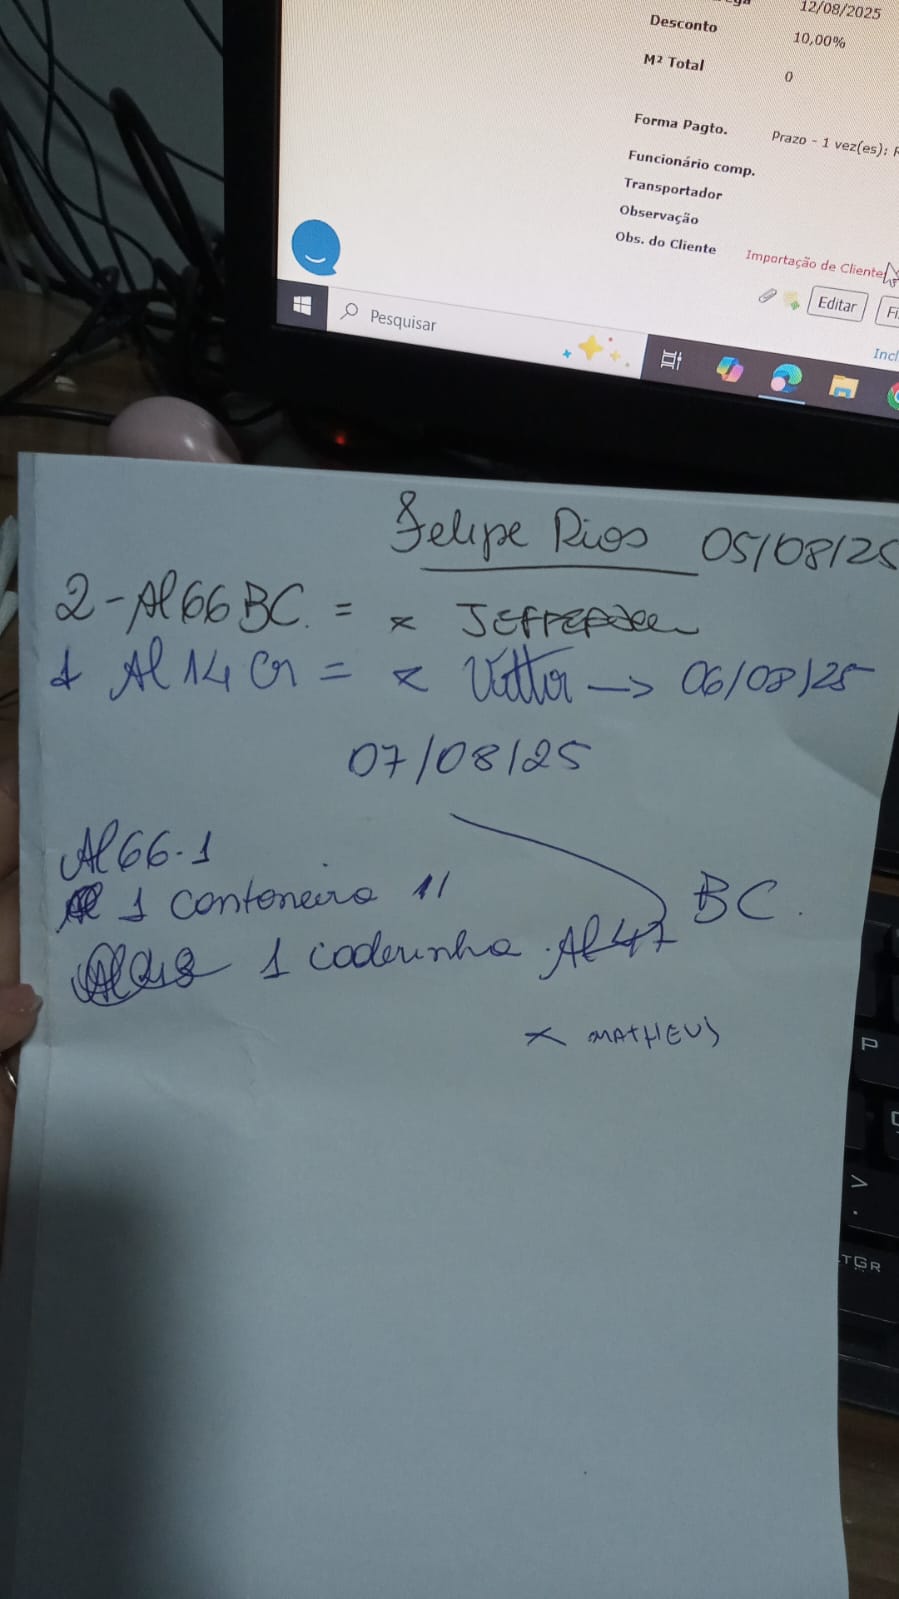 12/08/2025
Desconto 10,00%
M² Total 0
Forma Pagto. Prazo - 1 vez(es): R
Funcionário comp.
Transportador
Observação
Obs. do Cliente Importação de Cliente
Editar
Incl
Pesquisar
Felipe Rios 05/08/25
2-Al66 BC. = x
1 Al 14 Cr = x Vittor -> 06/08/25
07/08/25
Al66-1
1 contoneira 11
1 caderinha. Al47 BC.
x MATHEUS
P
>
.
TGR